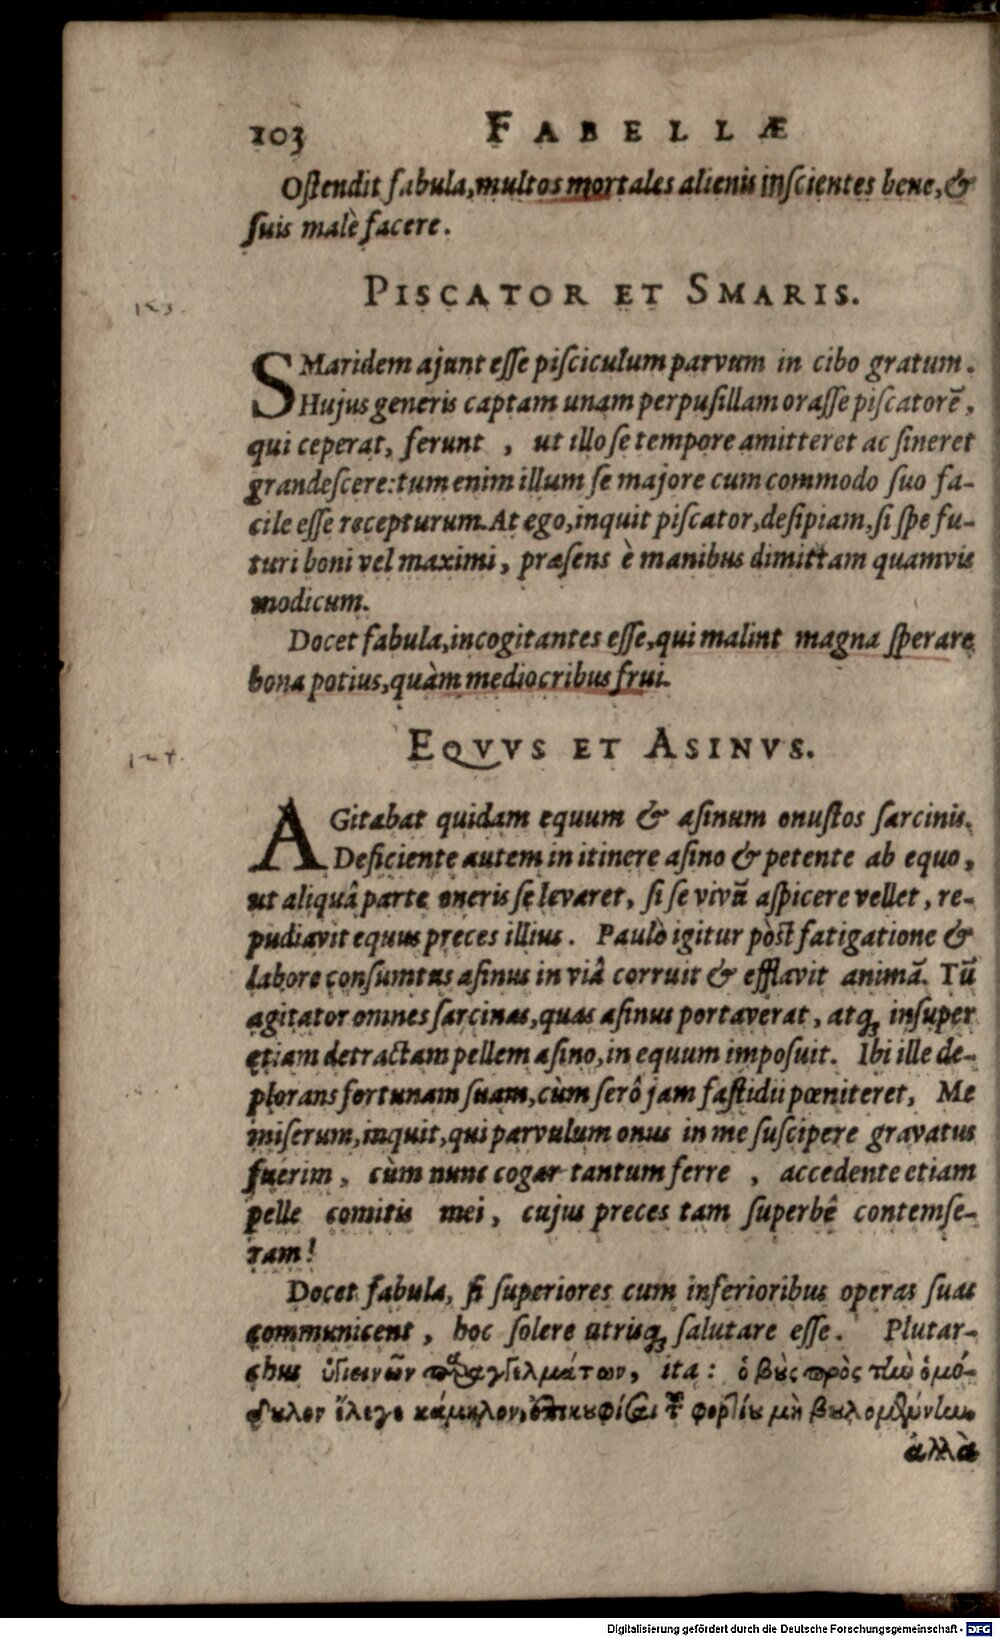 103 FABELLÆ
Oſtendit fabula, multos mortales alienis inſcientes bene, &
ſuis malè facere.
PISCATOR ET SMARIS.
153.
SMaridem ajunt eſſe piſciculum parvum in cibo gratum.
Hujus generis captam unam perpuſillam oraſſe piſcatorē,
qui ceperat, ferunt , ut illo ſe tempore amitteret ac ſineret
grandeſcere: tum enim illum ſe majore cum commodo ſuo fa-
cile eſſe recepturum. At ego, inquit piſcator, deſipiam, ſi ſpe fu-
turi boni vel maximi, præſens è manibus dimittam quamvis
modicum.
Docet fabula, incogitantes eſſe, qui malint magna ſperare
bona potius, quàm mediocribus frui.
EQVVS ET ASINVS.
AGitabat quidam equum & aſinum onuſtos ſarcinis.
Deficiente autem in itinere aſino & petente ab equo,
ut aliquâ parte oneris ſe levaret, ſi ſe vivū aſpicere vellet, re-
pudiavit equus preces illius. Paulò igitur pòſt fatigatione &
labore conſumtus aſinus in viâ corruit & efflavit animā. Tū
agitator omnes ſarcinas, quas aſinus portaverat, atq; inſuper
etiam detractam pellem aſino, in equum impoſuit. Ibi ille de-
plorans fortunam ſuam, cùm ſerô jam faſtidii pœniteret, Me
miſerum, inquit, qui parvulum onus in me ſuſcipere gravatus
fuerim, cùm nunc cogar tantum ferre , accedente etiam
pelle comitis mei, cujus preces tam ſuperbê contemſe-
ram!
Docet fabula, ſi ſuperiores cum inferioribus operas ſuas
communicent, hoc ſolere utriſq; ſalutare eſſe. Plutar-
chus ὑγιεινῶν παραγγελμάτων, ita: ὁ βοῦς πρὸς τὴν ὁμό-
δουλον ἔλεγε κάμηλον, ἐπικουφίσαι τοῦ φορτίου μὴ βουλομένην
ἀλλὰ
Digitalisierung gefördert durch die Deutsche Forschungsgemeinschaft - DFG